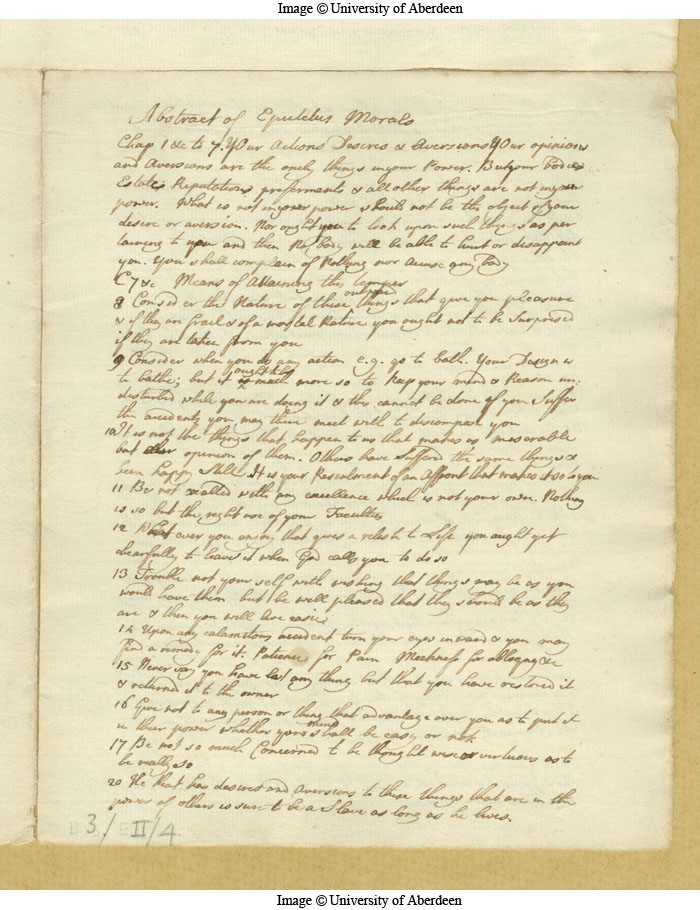 Image © University of Aberdeen
Abstract of Epictetus Morals
Chap 1 &c to 7. Our Actions Desires & Aversions Our opinions
and Aversions are the onely things in your Power. But your bodies
Estates Reputations preferments & all other things are not in your
power. What is not in your power should not be the object of your
desire or aversion. Nor ought you to look upon such things as per
taining to you and then No body will be able to hurt or disappoint
you. You shall complain of Nothing nor Accuse any body
C 7 &c Means of Attaining this temper
8 Consider the Nature of those outward things that give you pleasure
& if they are frail & of a mortal Nature you ought not to be Surprised
if they are taken from you
9 Consider when you do any action e.g. go to bath. Your Design is
to bathe; but it ought to be much more so to keep your mind & Reason un:
disturbed while you are doing it & this cannot be done if you Suffer
the accidents you may there meet with to discompose you
10 It is not the things that happen to us that makes us miserable
but our opinion of them. Others have Sufferd the same things &
been happy Still. It is your Resentment of an Affront that makes it so to you
11 Be not exalted with any excellence which is not your own. Nothing
is so but the right use of your Faculties
12 What ever you enjoy that gives a relish to Life you ought yet
chearfully to leave it when God calls you to do so
13 Trouble not your self with wishing that things may be as you
would have them but be well pleased that they should be as they
are & then you will live easie
14 Upon any calamitous accident turn your eyes inward & you may
find a remedy for it. Patience for Pain Meekness for obloquy &c
15 Never say you have lost any thing but that you have restored it
& returned it to the owner
16 Give not to any person or thing that advantage over you as to put it
in their power whether your mind shall be easy or not
17 Be not so much Concerned to be thought wise or virtuous as to
be really so
20 He that has desires and Aversions to these things that are in the
power of others is sure to be a Slave as long as he lives.
3/ II/4
Image © University of Aberdeen